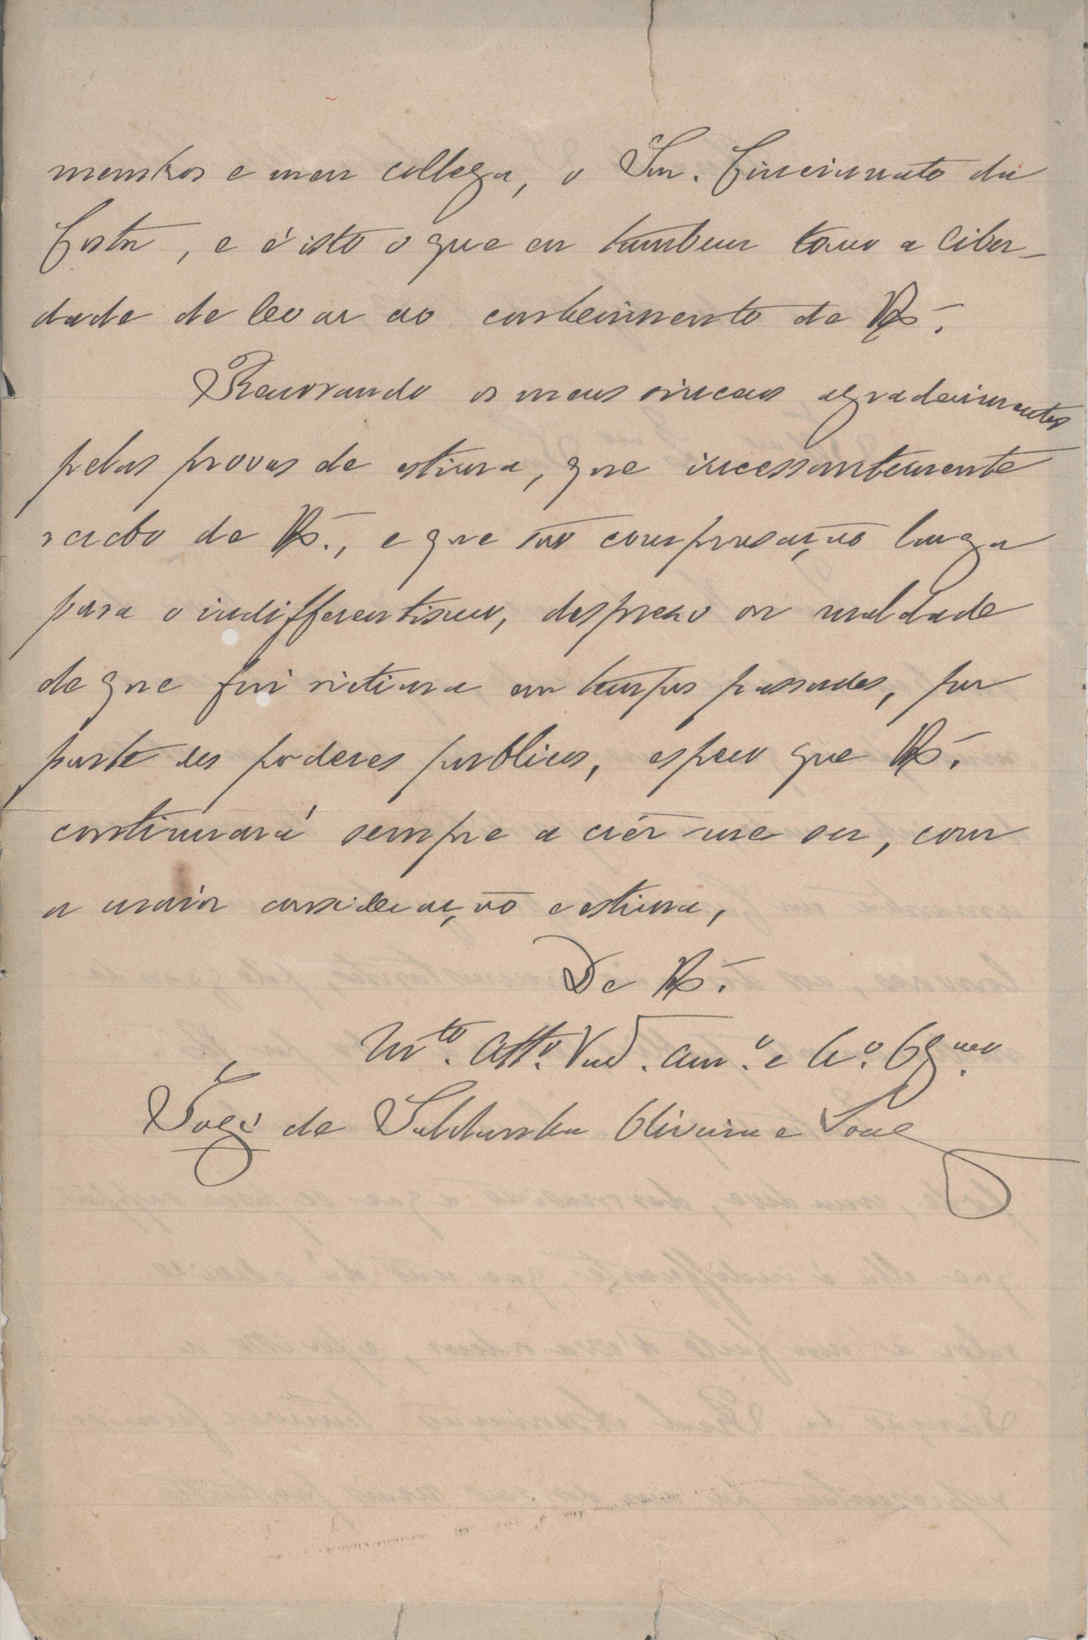 membros e meu collega, o Snr. Cincinnato da
Costa, e é isto o que eu tambem tomo a liber-
dade de levar ao conhecimento de V.S.
Renovando os meus sinceros agradecimentos
pelas provas de estima, que incessantemente
recebo de V.S., e que são compensação larga
para o indifferentismo, desprezo ou maldade
de que fui victima em tempos passados, por
parte dos poderes publicos, espero que V.S.
continuará sempre a crêr-me ser, com
a maior consideração e estima,
De V.S.
Mto. Atto. Vnd. Am.o e Cr.o Obgmo.
José de Saldanha Oliveira e Souza